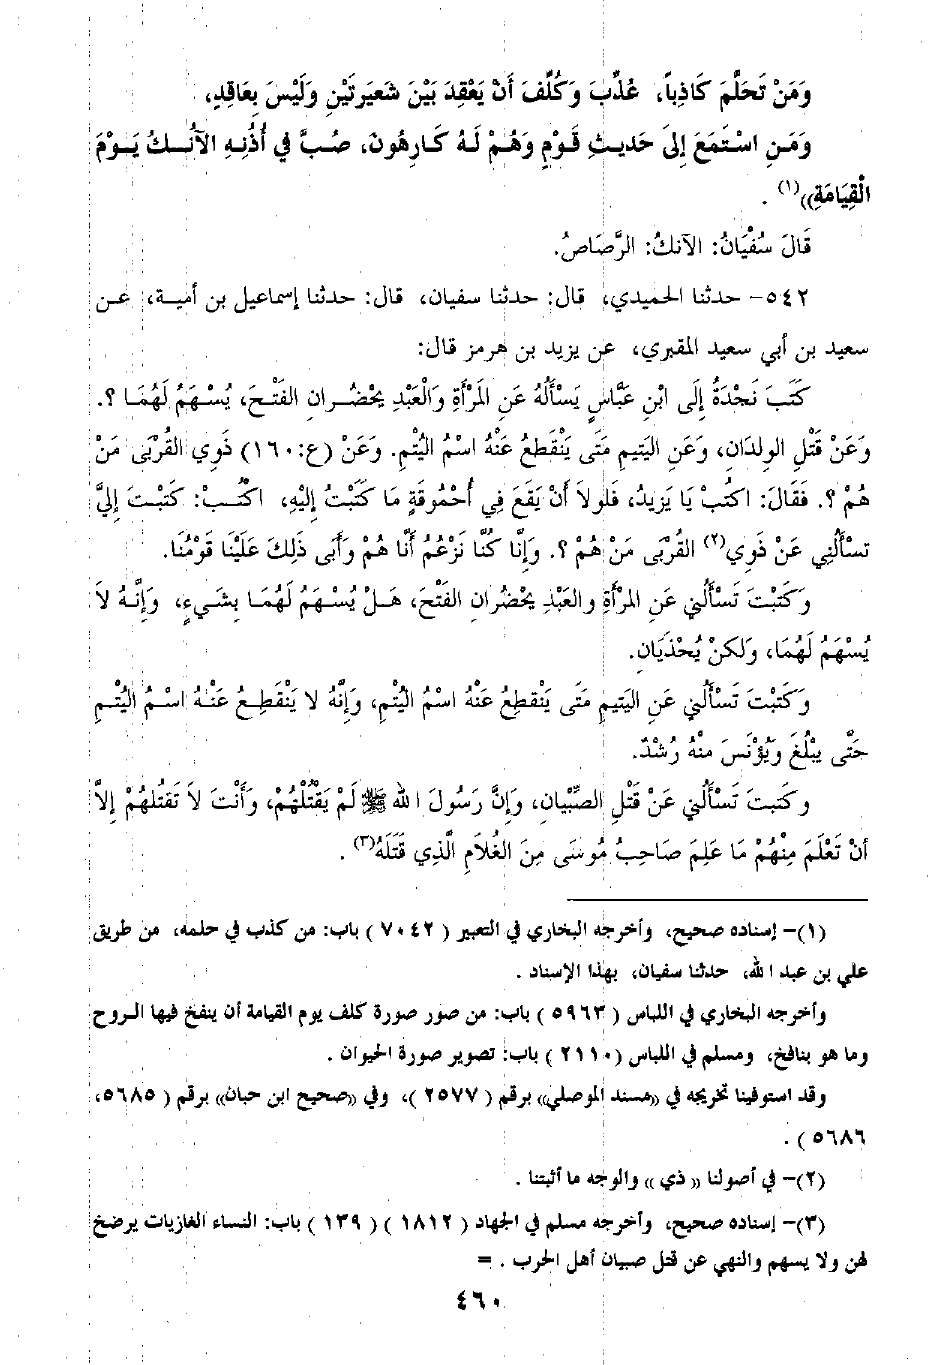 وَمَنْ تَحَلَّمَ كَاذِباً، عُذِّبَ وَكُلِّفَ أَنْ يَعْقِدَ بَيْنَ شَعِيرَتَيْنِ وَلَيْسَ بِعَاقِدٍ،
وَمَنِ اسْتَمَعَ إِلَى حَدِيثِ قَوْمٍ وَهُمْ لَهُ كَارِهُونَ، صُبَّ في أُذُنِهِ الآنُكُ يَوْمَ
الْقِيَامَةِ))(١) .
قَالَ سُفْيَانُ: الآنكُ: الرَّصَاصُ.
٥٤٢- حدثنا الحميدي، قال: حدثنا سفيان، قال: حدثنا إسماعيل بن أمية، عن
سعيد بن أبي سعيد المقبري، عن يزيد بن هرمز قال:
كَتَبَ نَجْدَةُ إِلَى ابْنِ عَبَّاسٍ يَسْأَلُهُ عَنِ المَرْأَةِ وَالْعَبْدِ يَحْضُرانِ الفَتْحَ، يُسْهَمُ لَهُمَا ؟.
وَعَنْ قَتْلِ الوِلدَانِ، وَعَنِ اليَتيمِ مَتَى يَنْقَطِعُ عَنْهُ اسْمُ اليُتْمِ. وَعَنْ (ع:١٦٠) ذَوِي القُرْبَى مَنْ
هُمْ ؟. فَقَالَ: اكتُبْ يَا يَزِيدُ، فَلَولاَ أَنْ يَقَعَ فِي أُحْمُوقَةٍ مَا كَتَبْتُ إِلَيْهِ، اكْتُبْ: كَتَبْتَ إِليَّ
تسْأَلُنِي عَنْ ذَوِي(٢) القُرْبَى مَنْ هُمْ ؟. وَإِنَّا كُنَّا نَزْعُمُ أَنَّا هُمْ وَأَبَى ذَلِكَ عَلَيْنَا قَوْمُنَا.
وَكَتَبْتَ تَسْأَلُني عَنِ المَرْأَةِ والعَبْدِ يَحْضُرانِ الفَتْحَ، هَلْ يُسْهَمُ لَهُمَا بِشَيءٍ، وَإِنَّهُ لاَ
يُسْهَمُ لَهُمَا، وَلكنْ يُحْذَيَانِ.
وَكَتَبْتَ تَسْأَلُني عَنِ اليَتيمِ مَتَى يَنْقَطِعُ عَنْهُ اسْمُ اليُتْمِ، وَإِنَّهُ لا يَنْقَطِعُ عَنْهُ اسْمُ اليُتْمِ
حَتَّى يبْلُغَ وَيُؤْنَسَ مِنْهُ رُشْدٌ.
وَكَتَبتَ تَسْأَلُني عَنْ قَتْلِ الصِّبْيانِ، وَإِنَّ رَسُولَ اللهِ ﷺ لَمْ يَقْتُلْهُمْ، وَأَنْتَ لاَ تَقتُلهُمْ إِلاَّ
أَنْ تَعْلَمَ مِنْهُمْ مَا عَلِمَ صَاحِبُ مُوسَى مِنَ الغُلاَمِ الَّذِي قَتَلَهُ(٣) .
(١)- إسناده صحيح، وأخرجه البخاري في التعبير ( ٧٠٤٢ ) باب: من كذب في حلمه، من طريق
علي بن عبد الله، حدثنا سفيان، بهذا الإسناد .
وأخرجه البخاري في اللباس ( ٥٩٦٣ ) باب: من صور صورة كلف يوم القيامة أن ينفخ فيها الروح
وما هو بنافخ، ومسلم في اللباس (٢١١٠ ) باب: تصوير صورة الحيوان .
وقد استوفينا تخريجه في ((مسند الموصلي)) برقم ( ٢٥٧٧ )، وفي ((صحيح ابن حبان)) برقم ( ٥٦٨٥،
٥٦٨٦ ) .
(٢)- في أصولنا (( ذي )) والوجه ما أثبتنا .
(٣)- إسناده صحيح، وأخرجه مسلم في الجهاد ( ١٨١٢ )( ١٣٩ ) باب: النساء الغازيات يرضخ
لهن ولا يسهم والنهي عن قتل صبيان أهل الحرب . =
٤٦٠